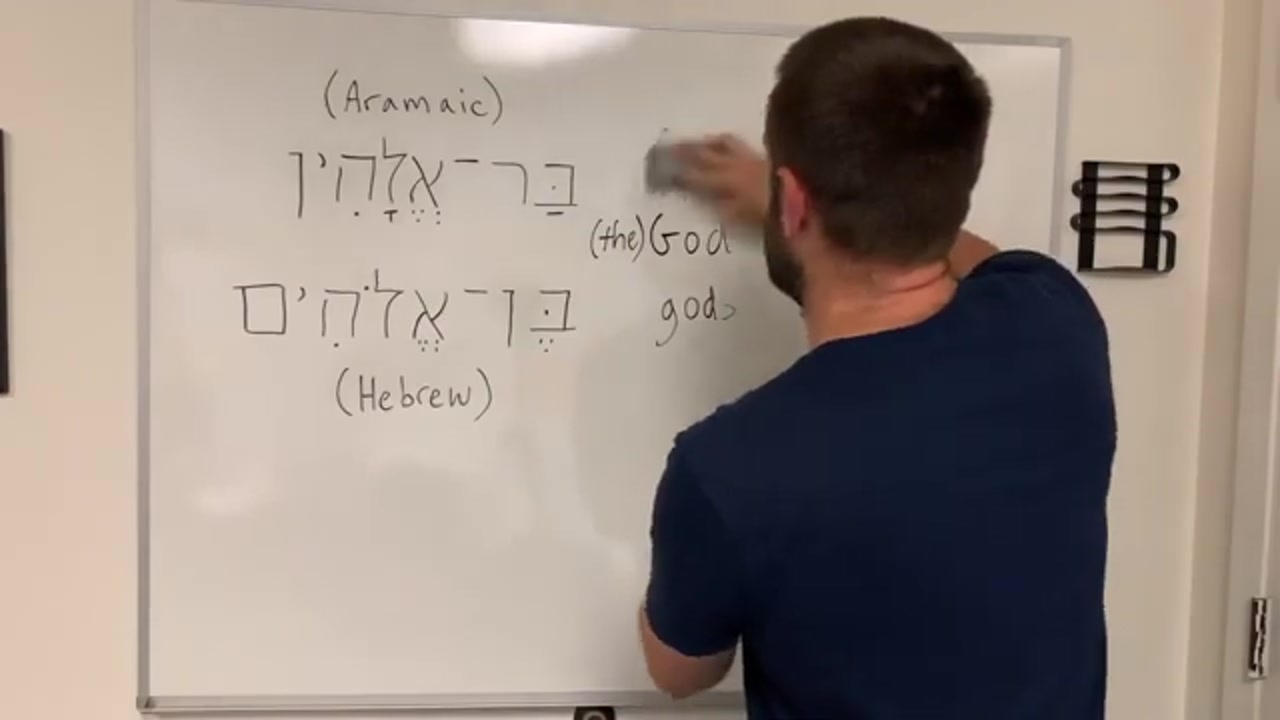 (Aramaic)
בַּר־אֱלָהִין
(the) God
בֶּן־אֱלֹהִים
gods
(Hebrew)